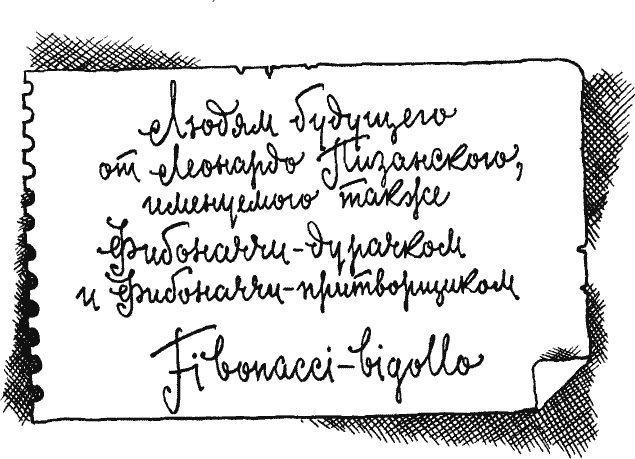 Людям будущего
от Леонардо Пизанского,
именуемого также
Фибоначчи-дурачком
и Фибоначчи-притворщиком
Fibonacci-bigollo